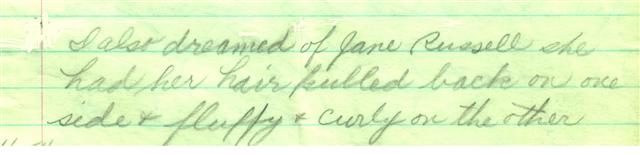 I also dreamed of Jane Russell she
had her hair pulled back on one
side & fluffy & curly on the other